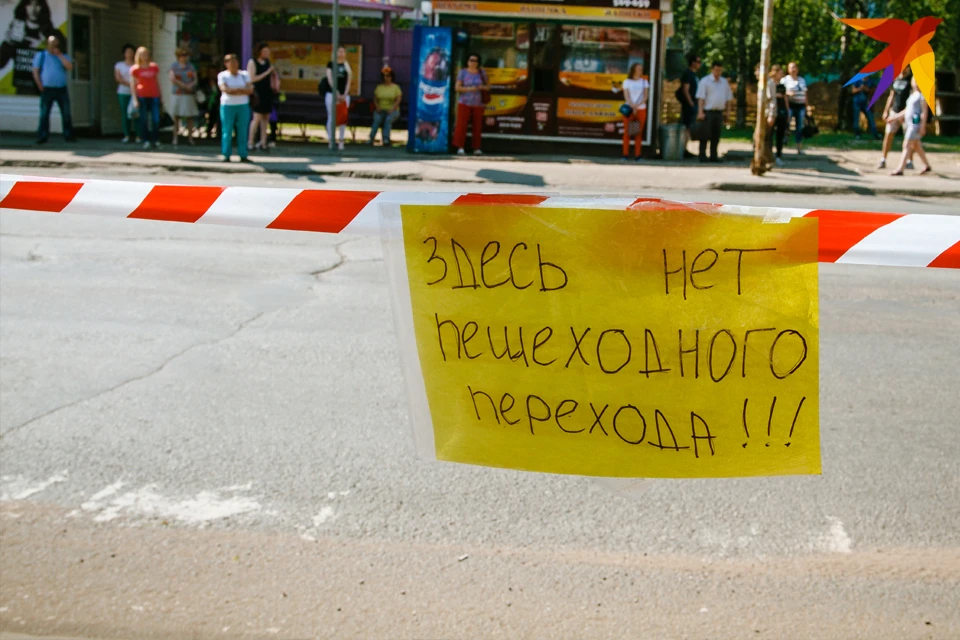 Здесь нет
пешеходного
перехода!!!